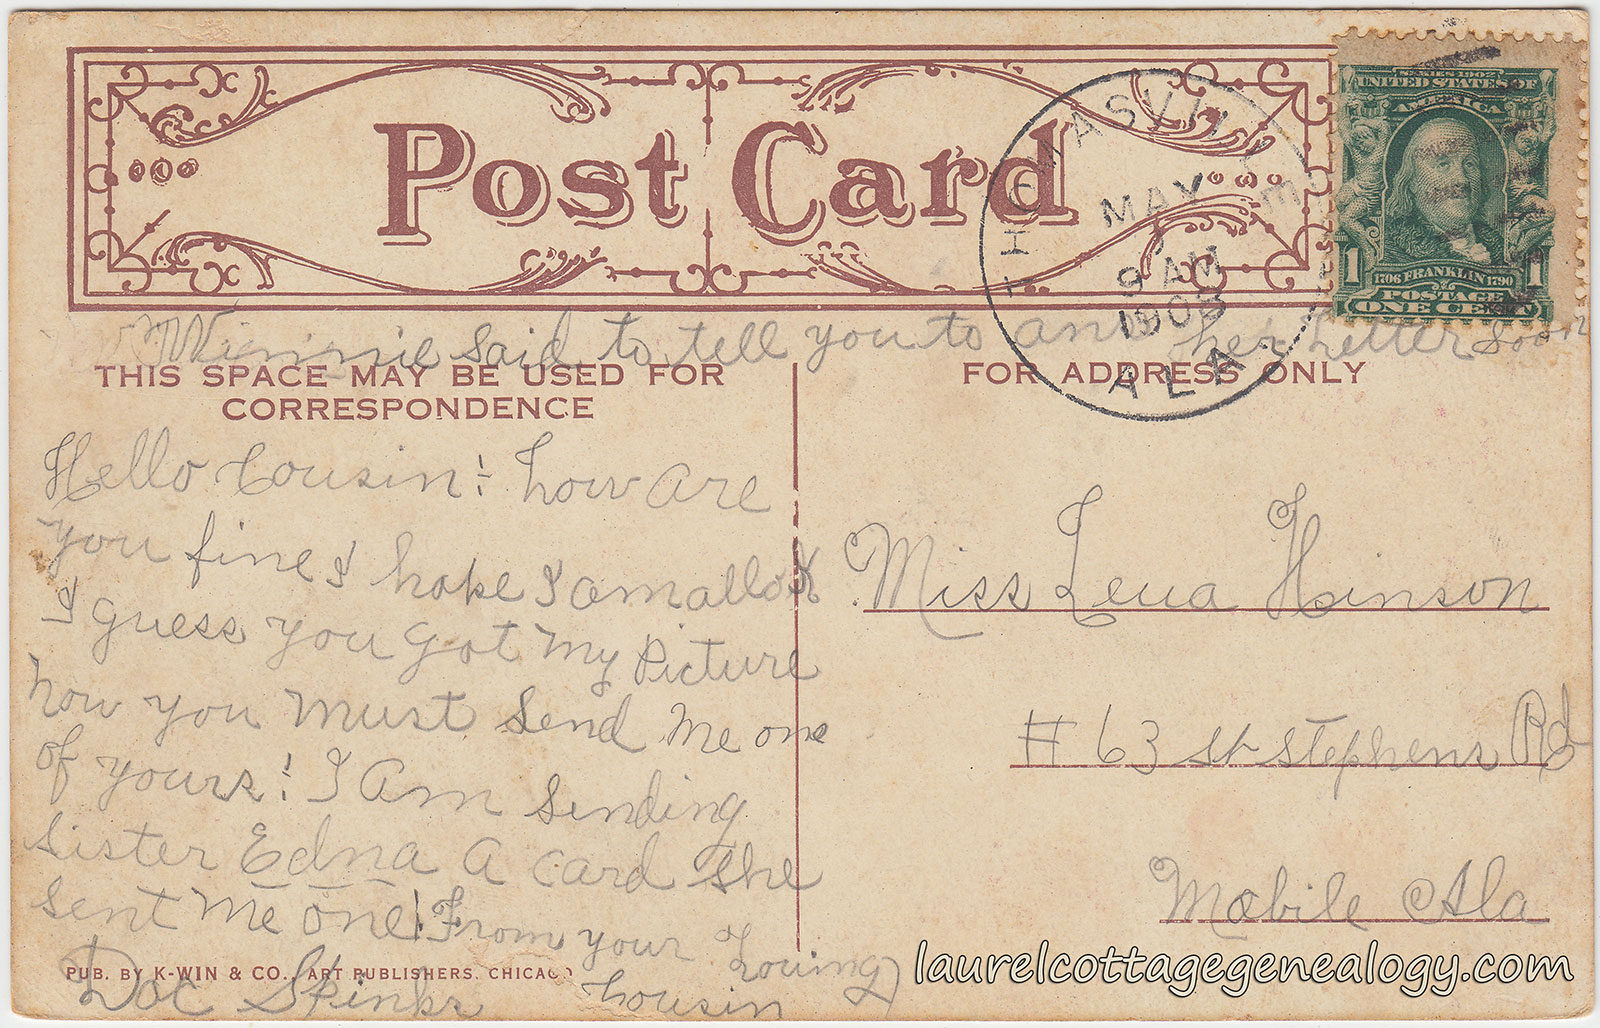 Post Card
THOMASVILLE
MAY
9 AM
1908
ALA.
SERIES 1902
UNITED STATES OF
AMERICA
1 1706 FRANKLIN 1790 1
POSTAGE
ONE CENT
Winnie said to tell you to ans her Letter soon
THIS SPACE MAY BE USED FOR
CORRESPONDENCE
FOR ADDRESS ONLY
Hello Cousin! how are
you fine I hope I am all ok
I guess you got my Picture
now you must send me one
of yours! I am sending
sister Edna a card she
sent me one! From your Loving
Cousin
Doc Spinks
Miss Leua Hinson
# 63 St Stephens Rd
Mobile Ala
PUB. BY K-WIN & CO., ART PUBLISHERS, CHICAGO
laurelcottagegenealogy.com